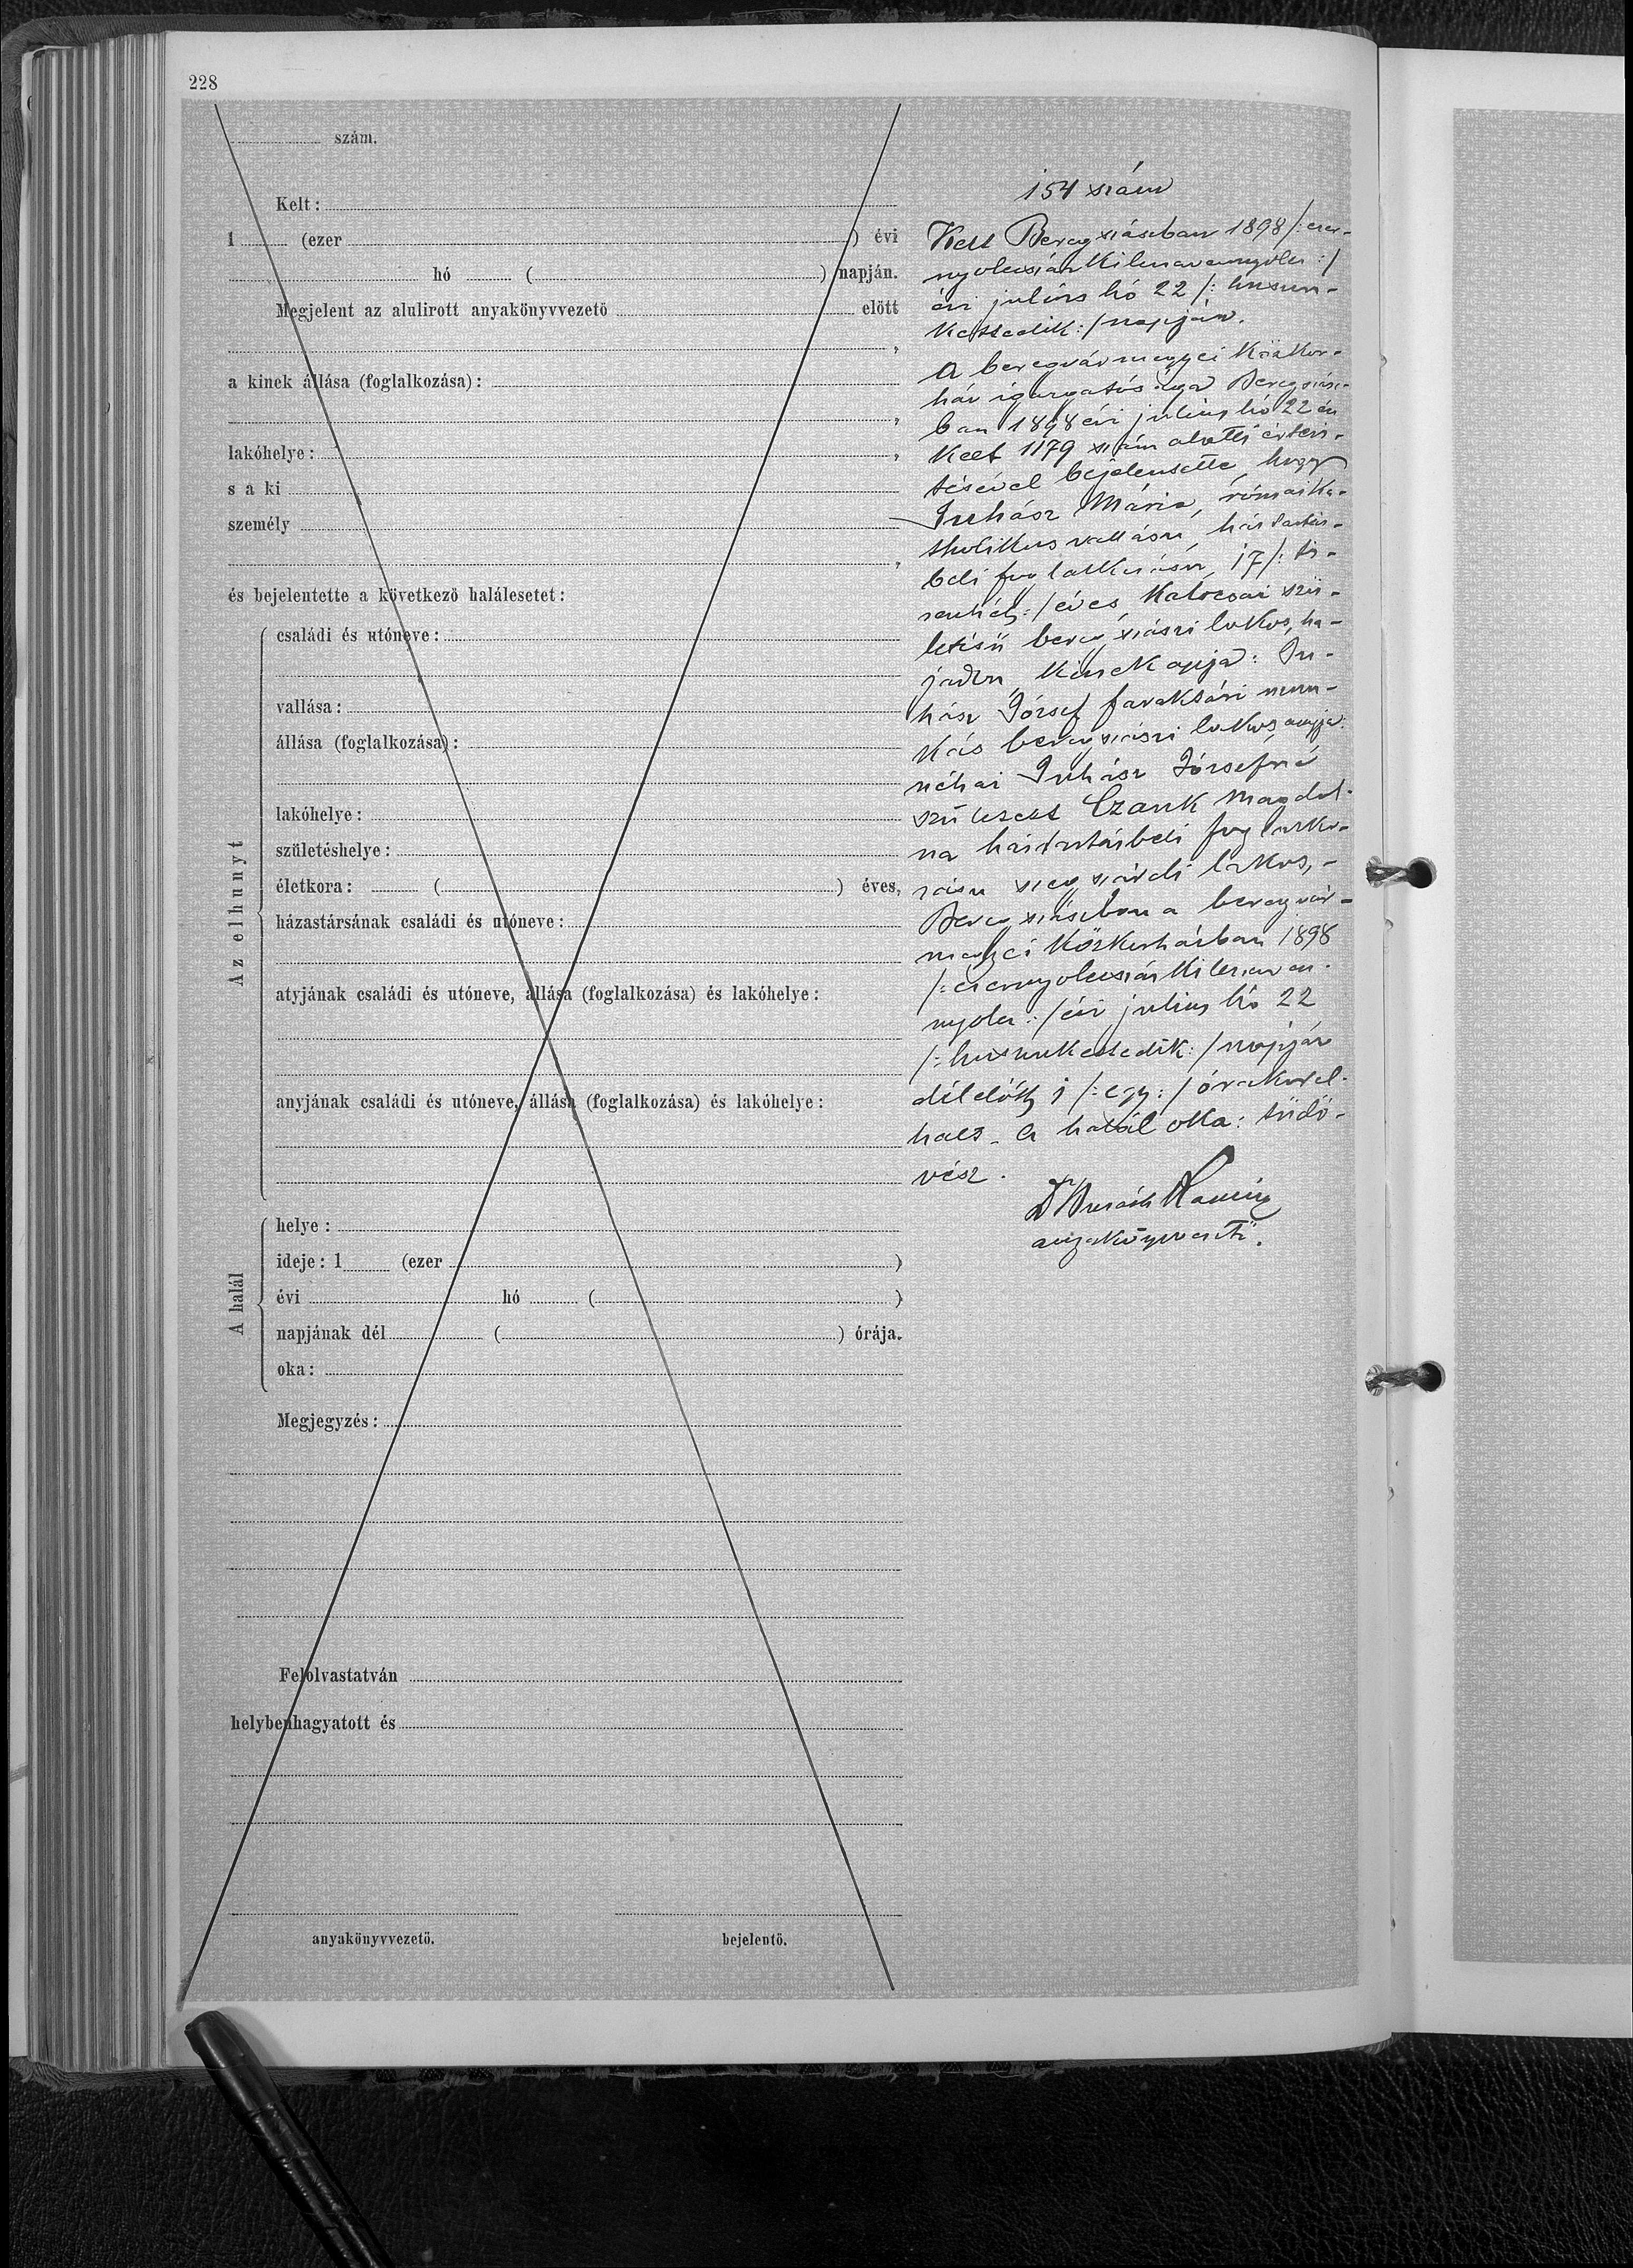 228
szám.
Kelt:
1 (ezer ) évi
hó ( ) napján.
Megjelent az alulirott anyakönyvvezető előtt
,
a kinek állása (foglalkozása):
,
lakóhelye: ,
s a ki
személy
,
és bejelentette a következő halálesetet:
Az elhunyt
családi és utóneve:
vallása:
állása (foglalkozása):
lakóhelye:
születéshelye:
életkora: ( ) éves,
házastársának családi és utóneve:
atyjának családi és utóneve, állása (foglalkozása) és lakóhelye:
anyjának családi és utóneve, állása (foglalkozása) és lakóhelye:
A halál
helye:
ideje: 1 (ezer )
évi hó ( )
napjának dél ( ) órája.
oka:
Megjegyzés:
Felolvastatván
helybenhagyatott és
anyakönyvvezető. bejelentő.
154 szám
Kelt Beregszászban 1898 /: ezer-
nyolczszázkilenczvennyolcz :/
évi julius hó 22 /: huszon-
kettedik :/ napján.
A beregvármegyei közkór-
ház igazgatósága Beregszász-
ban 1898 évi julius hó 22 én
kelt 1179 szám alatti értesi-
tésével bejelentette, hogy
Juhász Mária, római ka-
tholikus vallásu, háztartás-
beli foglalkozásu, 17 /: ti-
zenhét :/ éves, kalocsai szü-
letésü beregszászi lakos, ha-
jadon, kinek apja: Ju-
hász József
kás beregszászi lakos, anyja:
néhai Juhász Józsefné
született Czank Magdol-
na háztartásbeli foglalko-
zásu szegszárdi lakos, -
Beregszászban a beregvár-
megyei közkórházban 1898
/: ezernyolczszázkilenczven-
nyolcz :/ évi julius hó 22
/: huszonkettedik :/ napján
délelőtt 1 /: egy :/ órakor el-
halt. A halál oka: tüdő-
vész.
Dr
anyakönyvvezető.